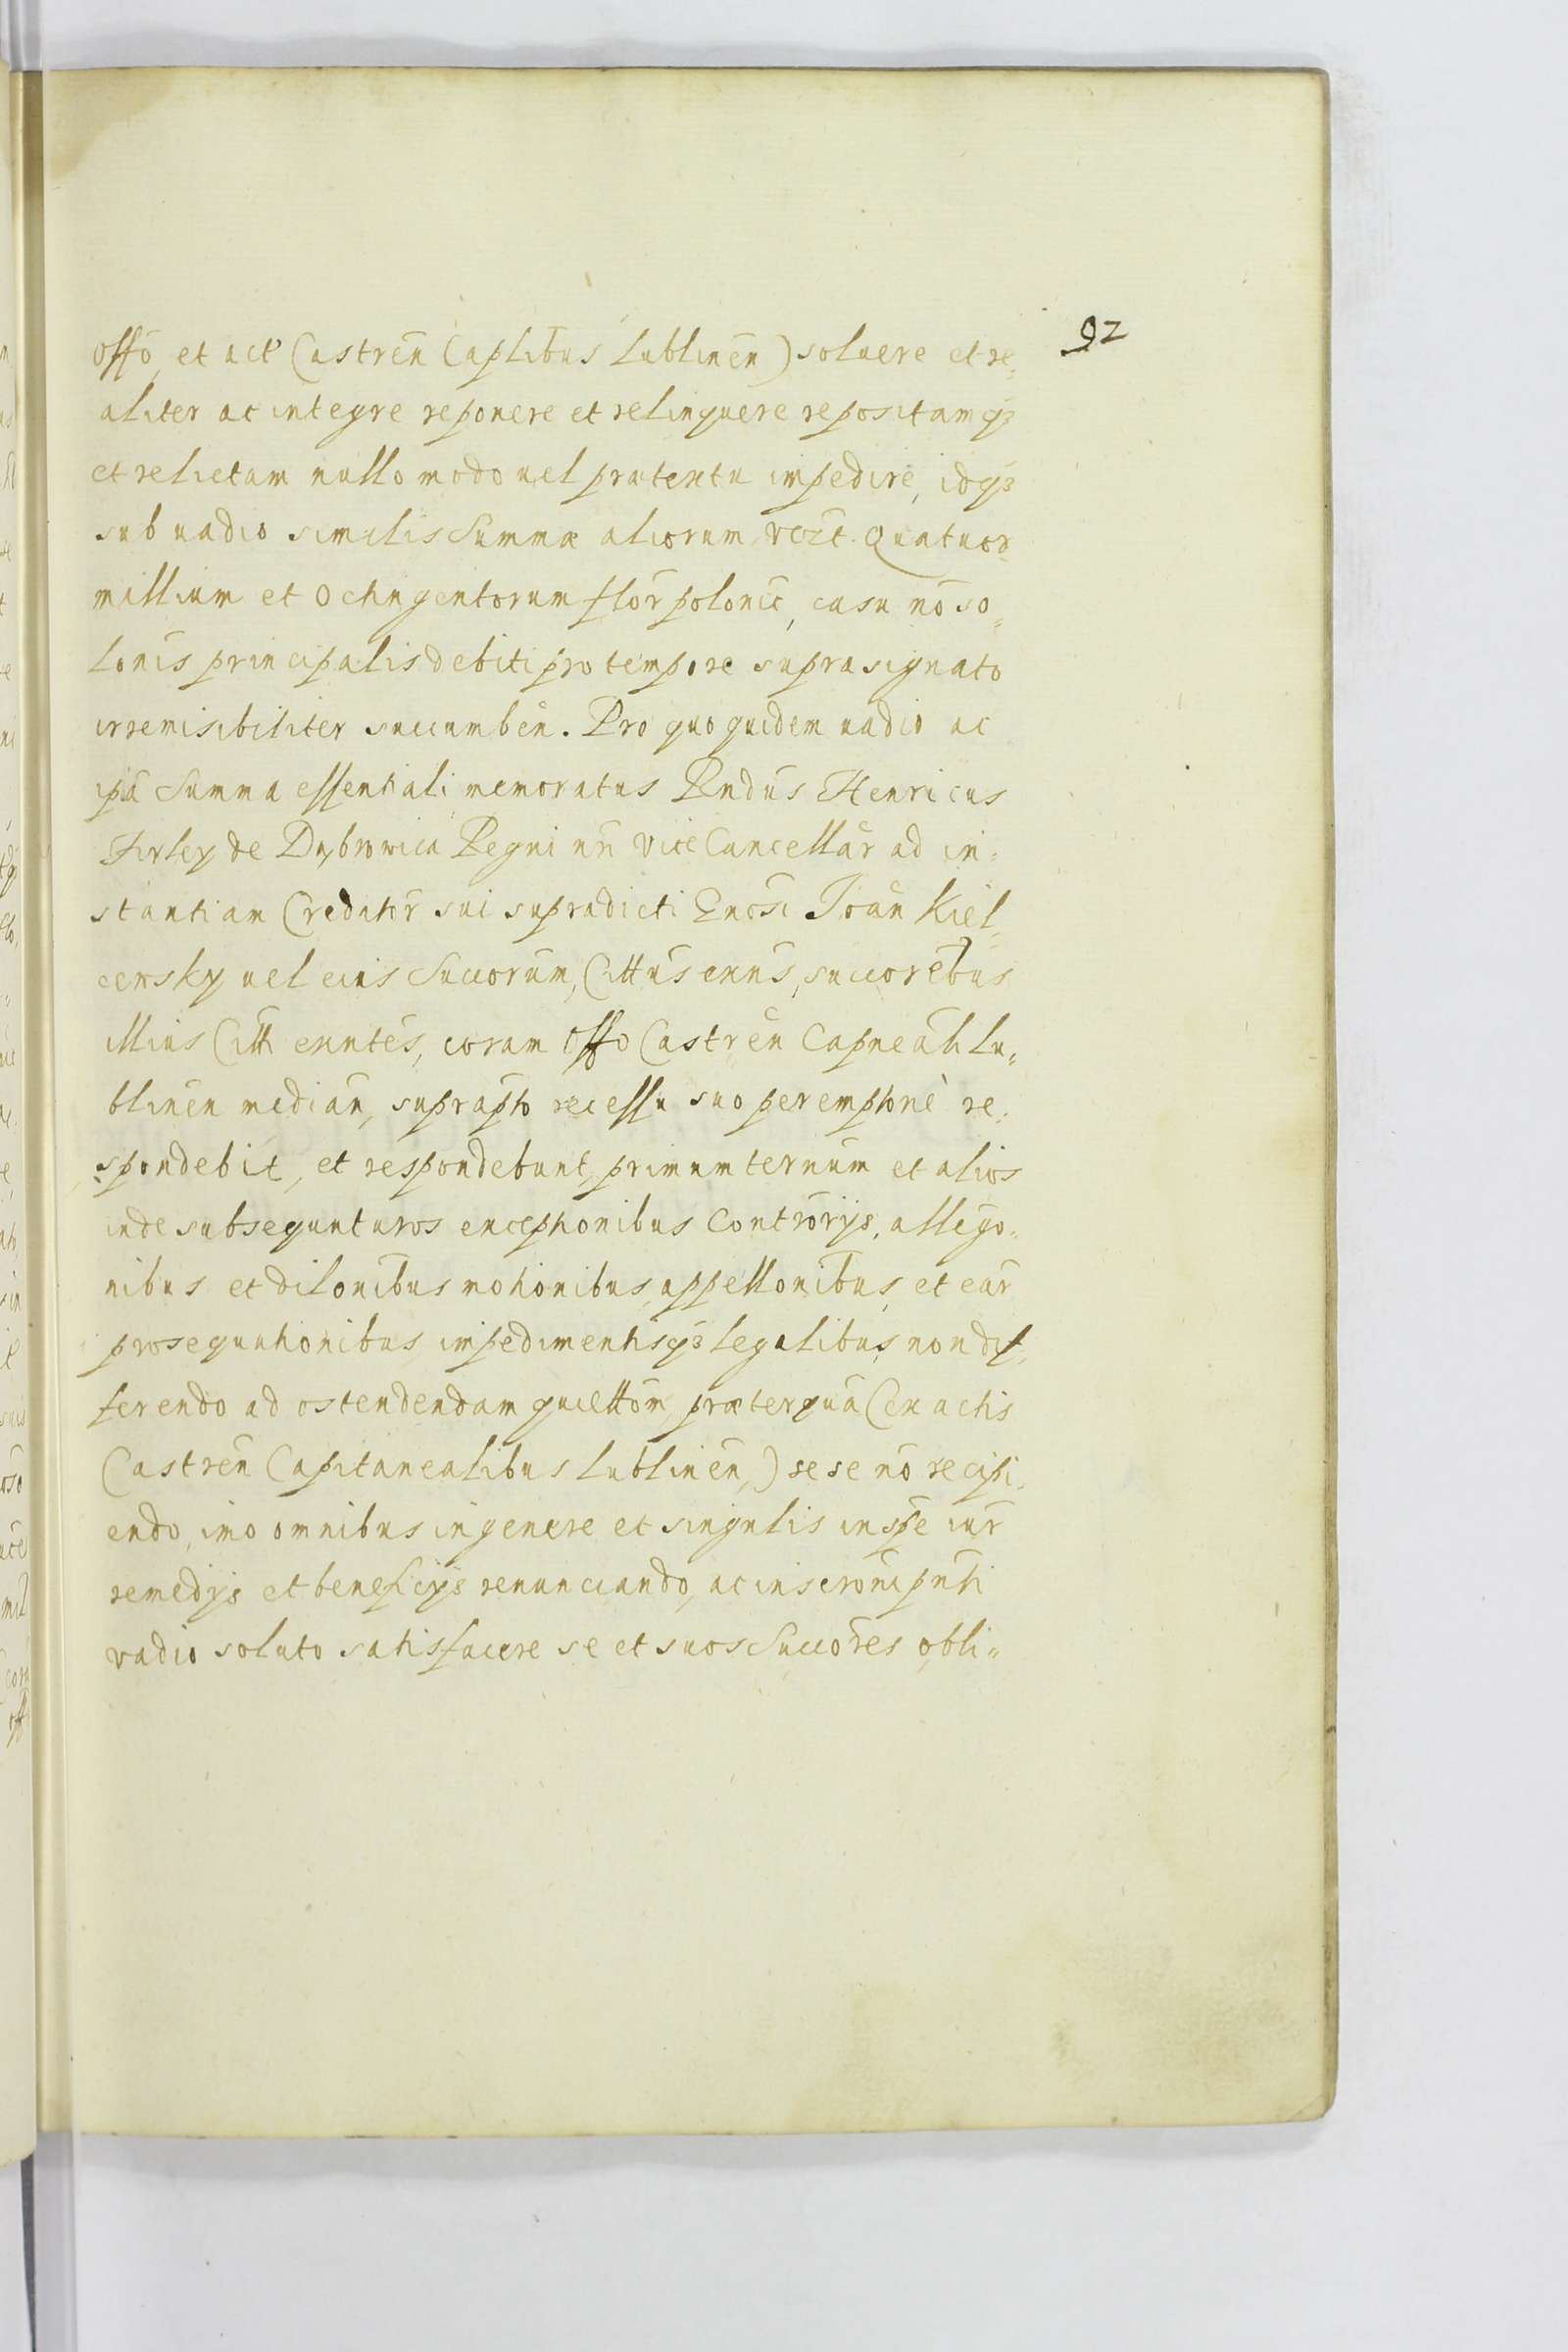 92
Offō, et act Castreñ Caplibus Lublineñ) soluere et re„
aliter ac integre reponere et relinquere repositamqȝ
et relictam nullo modo uel prætextu impedire, idqȝ
sub uadio similis Summæ aliorum Quatuor
millium et Octingentorum flōr polonic, casu nō so„
lonis principalis debiti pro tempore suprasignato
irremisibiliter succumbeñ. Pro quo quidem uadio ac
ipa Summa essentiali memoratus Rndus Henricus
Firley de Dąbrowica Regni nri ViceCancellar ad in„
stantiam Creditor sui supradicti Gnosi Joan Kiel„
cewsky uel eius Succorum, Cittus exnīs, succorebus
illius Citt exntes, coram Offo Castreñ Capneali Lu„
blineñ median, suprapto recessu suo peremptorie re„
spondebit, et respondebunt, primum ternum et alios
inde subsequuturos exceptionibus Controrijs, allego„
nibus et dilonibus motionibus, appellonibus, et ear
prosequutionibus impedimentisqȝ legalibus, non dif„
ferendo ad ostendendam quiettom præterqua (ex actis
Castreñ Capitanealibus Lublineñ,) sese nō recipi„
endo, imo omnibus in genere et singulis in spe iur
remedijs et beneficijs renunciando, ac inscroni pnti
vadio soluto satisfacere se et suos Succores obli„